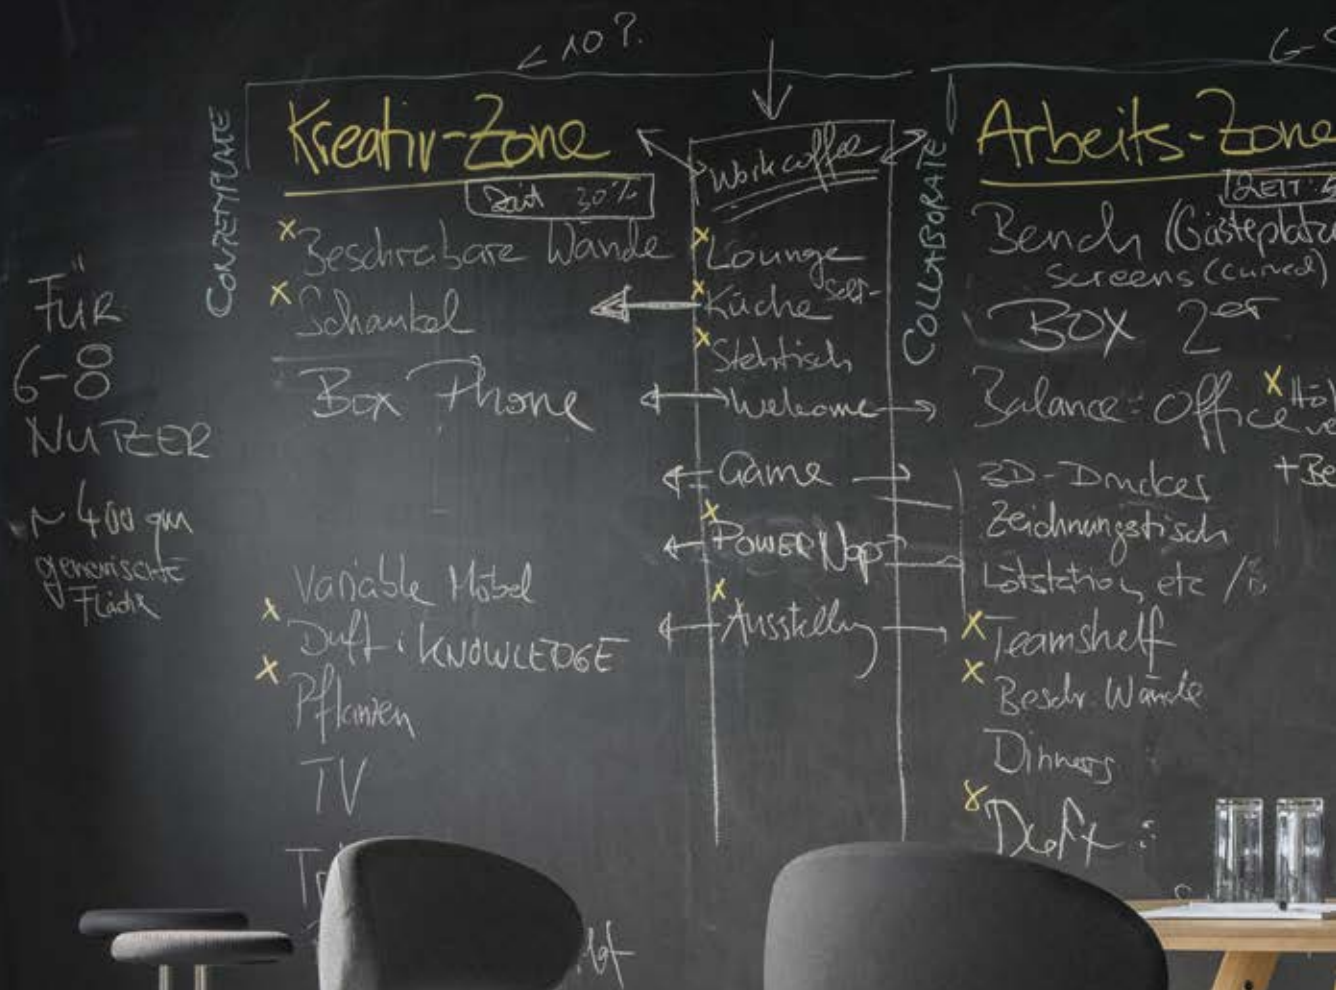 < 10 ?.
6-
CONTEMPLATE
Kreativ-Zone
Zeit 30%
x Beschreibare Wände
x Schaukel
Box Phone
Variable Möbel
x Duft: KNOWLEDGE
x Pflanzen
TV
FÜR
6-8
NUTZER
~ 400 qm
generische
Fläche
Workcoffee
x Lounge
x Küche Self-
x Stehtisch
Welcome
Game
x POWER Nap
x Ausstellung
COLLABORATE
Arbeits-Zone
ZEIT:
Bench (Gästeplätze
Screens (curved)
BOX 2er
Balance: Office
x Hö
ve
+Be
3D-Drucker
Zeichnungstisch
Lötstation etc /
x Teamshelf
x Beschr. Wände
Dinners
x Duft: